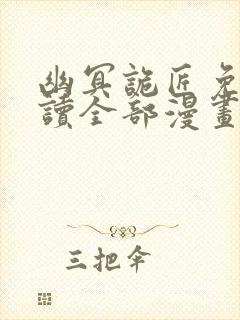 幽冥詭匠免
讀全部漫畫
三把伞